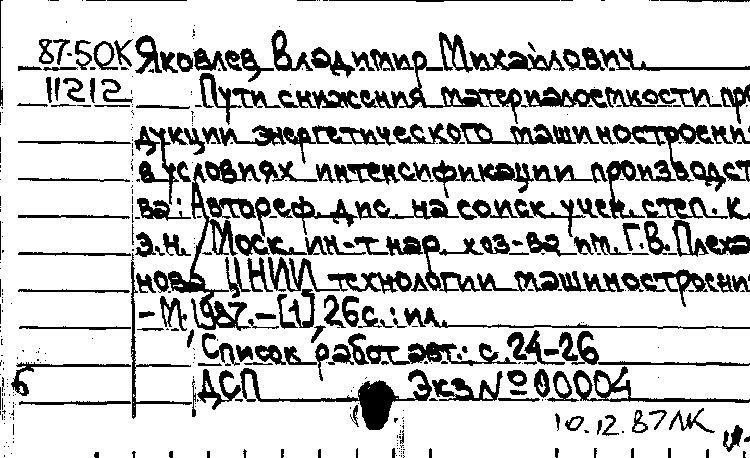 87-5OK Яковлев Владимир Михайлович.
11212 Пути снижения материалоемкости про
дукции энергетического машиностроени
в условиях интенсификации производст
ва: Автореф. дис. на соиск. учен. степ. к.
э.н. / Моск. ин-т нар. хоз-ва им. Г.В. Плеха
нова, ЦНИИ технологии машиностроени
-М. 1987.-[1] 26с.: ил.
Список работ авт.: с. 24-26
б ДСП Экз № 00004
10.12.87 ЛК